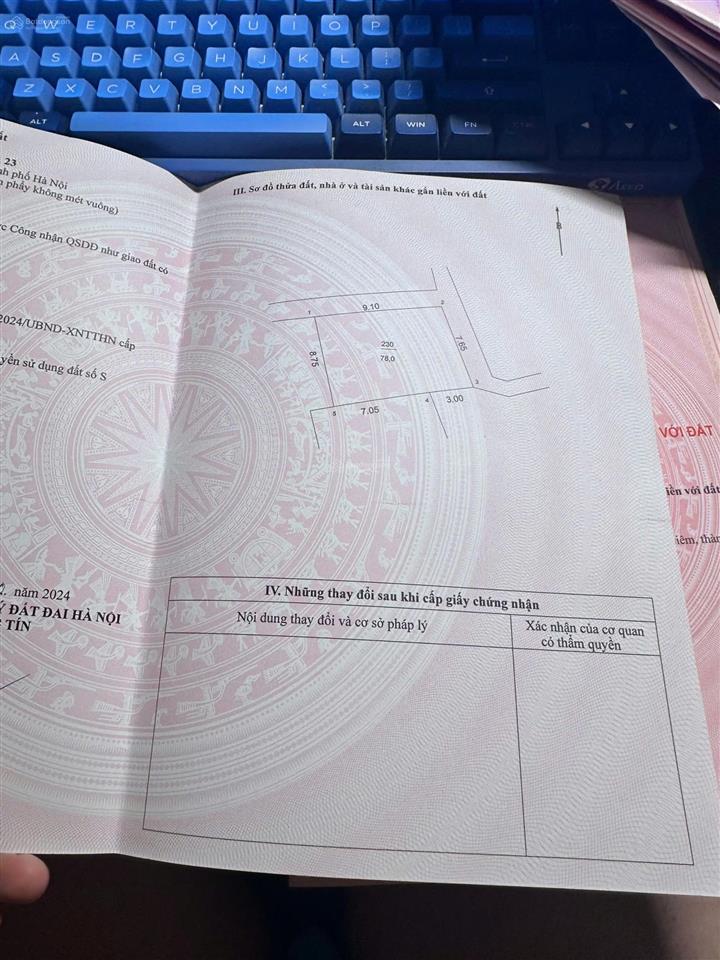 Batdongsan
Q W E R T Y U I O P
A S D F G H J K L
Z X C V B N M < > /
ALT ALT WIN FN
ất
23
nh phố Hà Nội
n phẩy không mét vuông)
ức Công nhận QSDĐ như giao đất có
2024/UBND-XNTTHN cấp
yền sử dụng đất số S
năm 2024
Ý ĐẤT ĐAI HÀ NỘI
TÍN
III. Sơ đồ thửa đất, nhà ở và tài sản khác gắn liền với đất
B
1 9.10 2
8.75 230 7.65
78,0
3
5 7.05 4 3.00
IV. Những thay đổi sau khi cấp giấy chứng nhận
Nội dung thay đổi và cơ sở pháp lý
Xác nhận của cơ quan
có thẩm quyền
VỚI ĐẤT
iền với đất
iêm, thàn